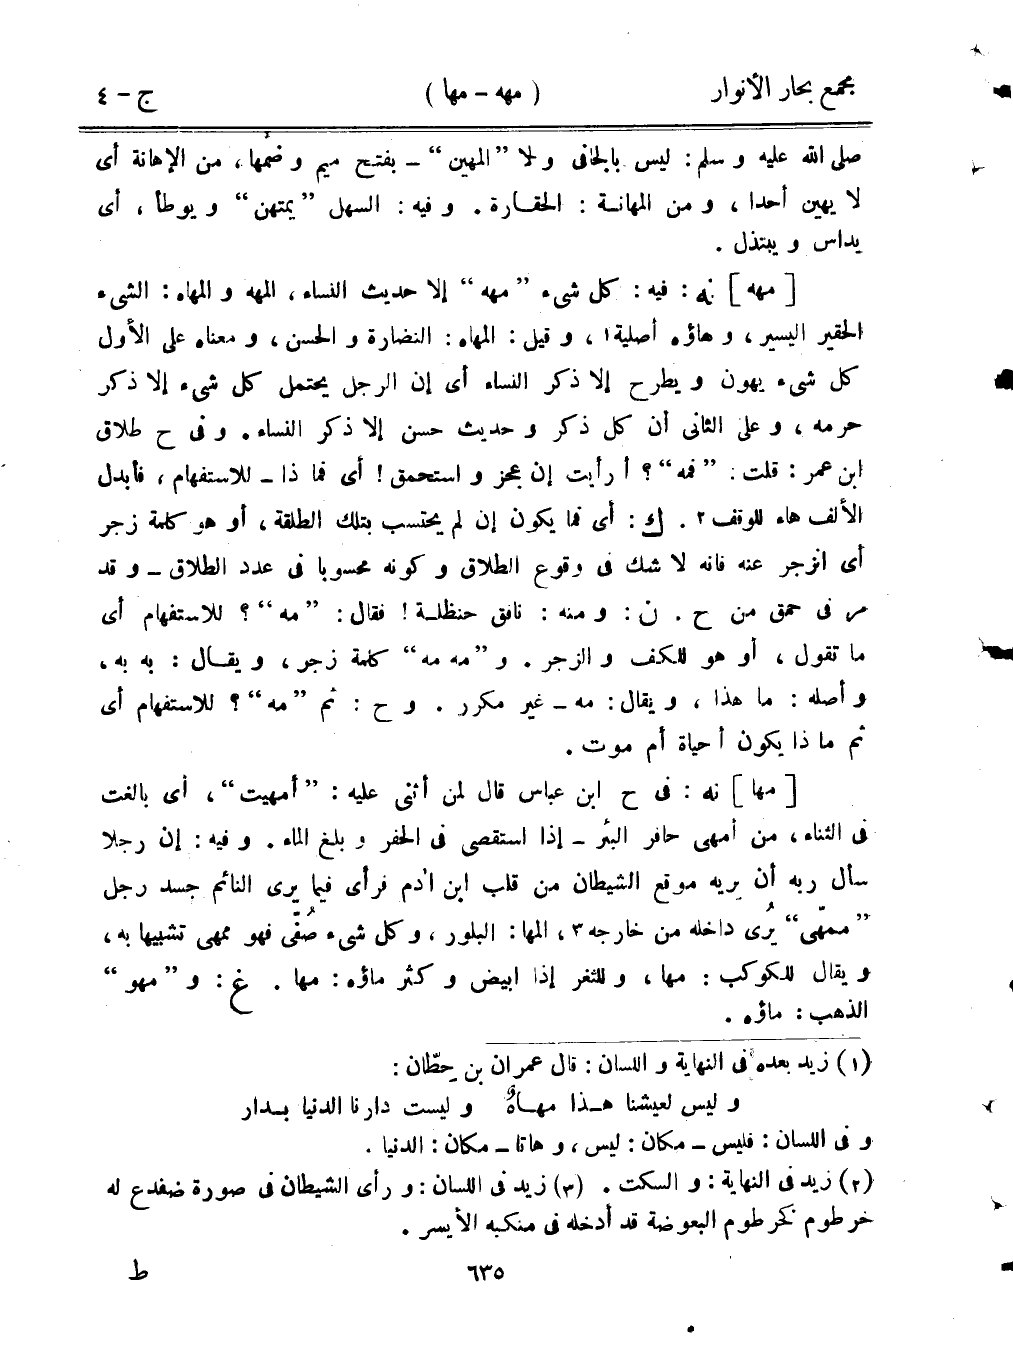 مجمع بحار الأنوار ( مهه – مها ) ج – ٤
صلى الله عليه و سلم : ليس بالجافى و لا ”المهين“ – بفتح ميم و ضمها ، من الإهانة أى
لا يهين أحدا ، و من المهانة : الحقارة . و فيه : السهل ”يمتهن“ و يوطأ ، أى
يداس و يبتذل .
[ مهه ] نه : فيه : كل شىء ”مهه“ إلا حديث النساء ، المهه و المهاه : الشىء
الحقير اليسير ، و هاؤه أصلية١ ، و قيل : المهاه : النضارة و الحسن ، و معناه على الأول
كل شىء يهون و يطرح إلا ذكر النساء أى إن الرجل يحتمل كل شىء إلا ذكر
حرمه ، و على الثانى أن كل ذكر و حديث حسن إلا ذكر النساء . و فى ح طلاق
ابن عمر : قلت : ”فمه“ ؟ أ رأيت إن عجز و استحمق ! أى فما ذا – للاستفهام ، فأبدل
الألف هاء للوقف٢ . ك : أى فما يكون إن لم يحتسب بتلك الطلقة ، أو هو كلمة زجر
أى انزجر عنه فانه لا شك فى وقوع الطلاق و كونه محسوبا فى عدد الطلاق – و قد
مر فى حمق من ح . ن : و منه : نافق حنظلة ! فقال : ”مه“ ؟ للاستفهام أى
ما تقول ، أو هو للكف و الزجر . و ”مه مه“ كلمة زجر ، و يقال : به به ،
و أصله : ما هذا ، و يقال : مه – غير مكرر . و ح : ثم ”مه“ ؟ للاستفهام أى
ثم ما ذا يكون أ حياة أم موت .
[ مها ] نه : فى ح ابن عباس قال لمن أثنى عليه : ”أمهيت“ ، أى بالغت
فى الثناء ، من أمهى حافر البئر – إذا استقصى فى الحفر و بلغ الماء . و فيه : إن رجلا
سأل ربه أن يريه موقع الشيطان من قلب ابن اٰدم فرأى فيما يرى النائم جسد رجل
”ممهّى“ يُرى داخله من خارجه٣ ، المها : البلور ، و كل شىء صُفّى فهو ممهى تشبيها به ،
و يقال للكوكب : مها ، و للثغر إذا ابيض و كثر ماؤه : مها . غ : و ”مهو“
الذهب : ماؤه .
(١) زيد بعده فى النهاية و اللسان : قال عمران بن حِطّان :
و ليس لعيشنا هذا مهاهٌ و ليست دارنا الدنيا بدار
و فى اللسان : فليس – مكان : ليس ، و هاتا – مكان : الدنيا .
(٢) زيد فى النهاية : و السكت . (٣) زيد فى اللسان : و رأى الشيطان فى صورة ضفدع له
خرطوم كخرطوم البعوضة قد أدخله فى منكبه الأيسر .
٦٣٥ ط